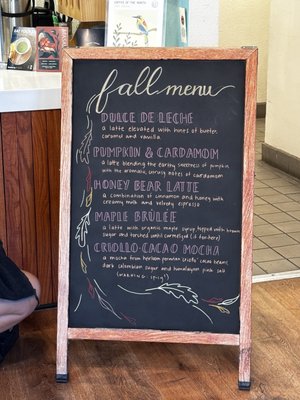 fall menu
DULCE DE LECHE
a latte elevated with tones of butter,
caramel and vanilla.
PUMPKIN & CARDAMOM
a latte blending the earthy sweetness of pumpkin
with the aromatic, citrusy notes of cardamom
HONEY BEAR LATTE
a combination of cinnamon and honey with
creamy milk and velvety espresso
MAPLE BRÛLÉE
a latte with organic maple syrup topped with brown
sugar and torched until carmelized
CRIOLLO-CACAO MOCHA
a mocha from heirloom peruvian criollo cacao beans,
dark colombian sugar and himalayan pink salt
(WARNING: spicy!)